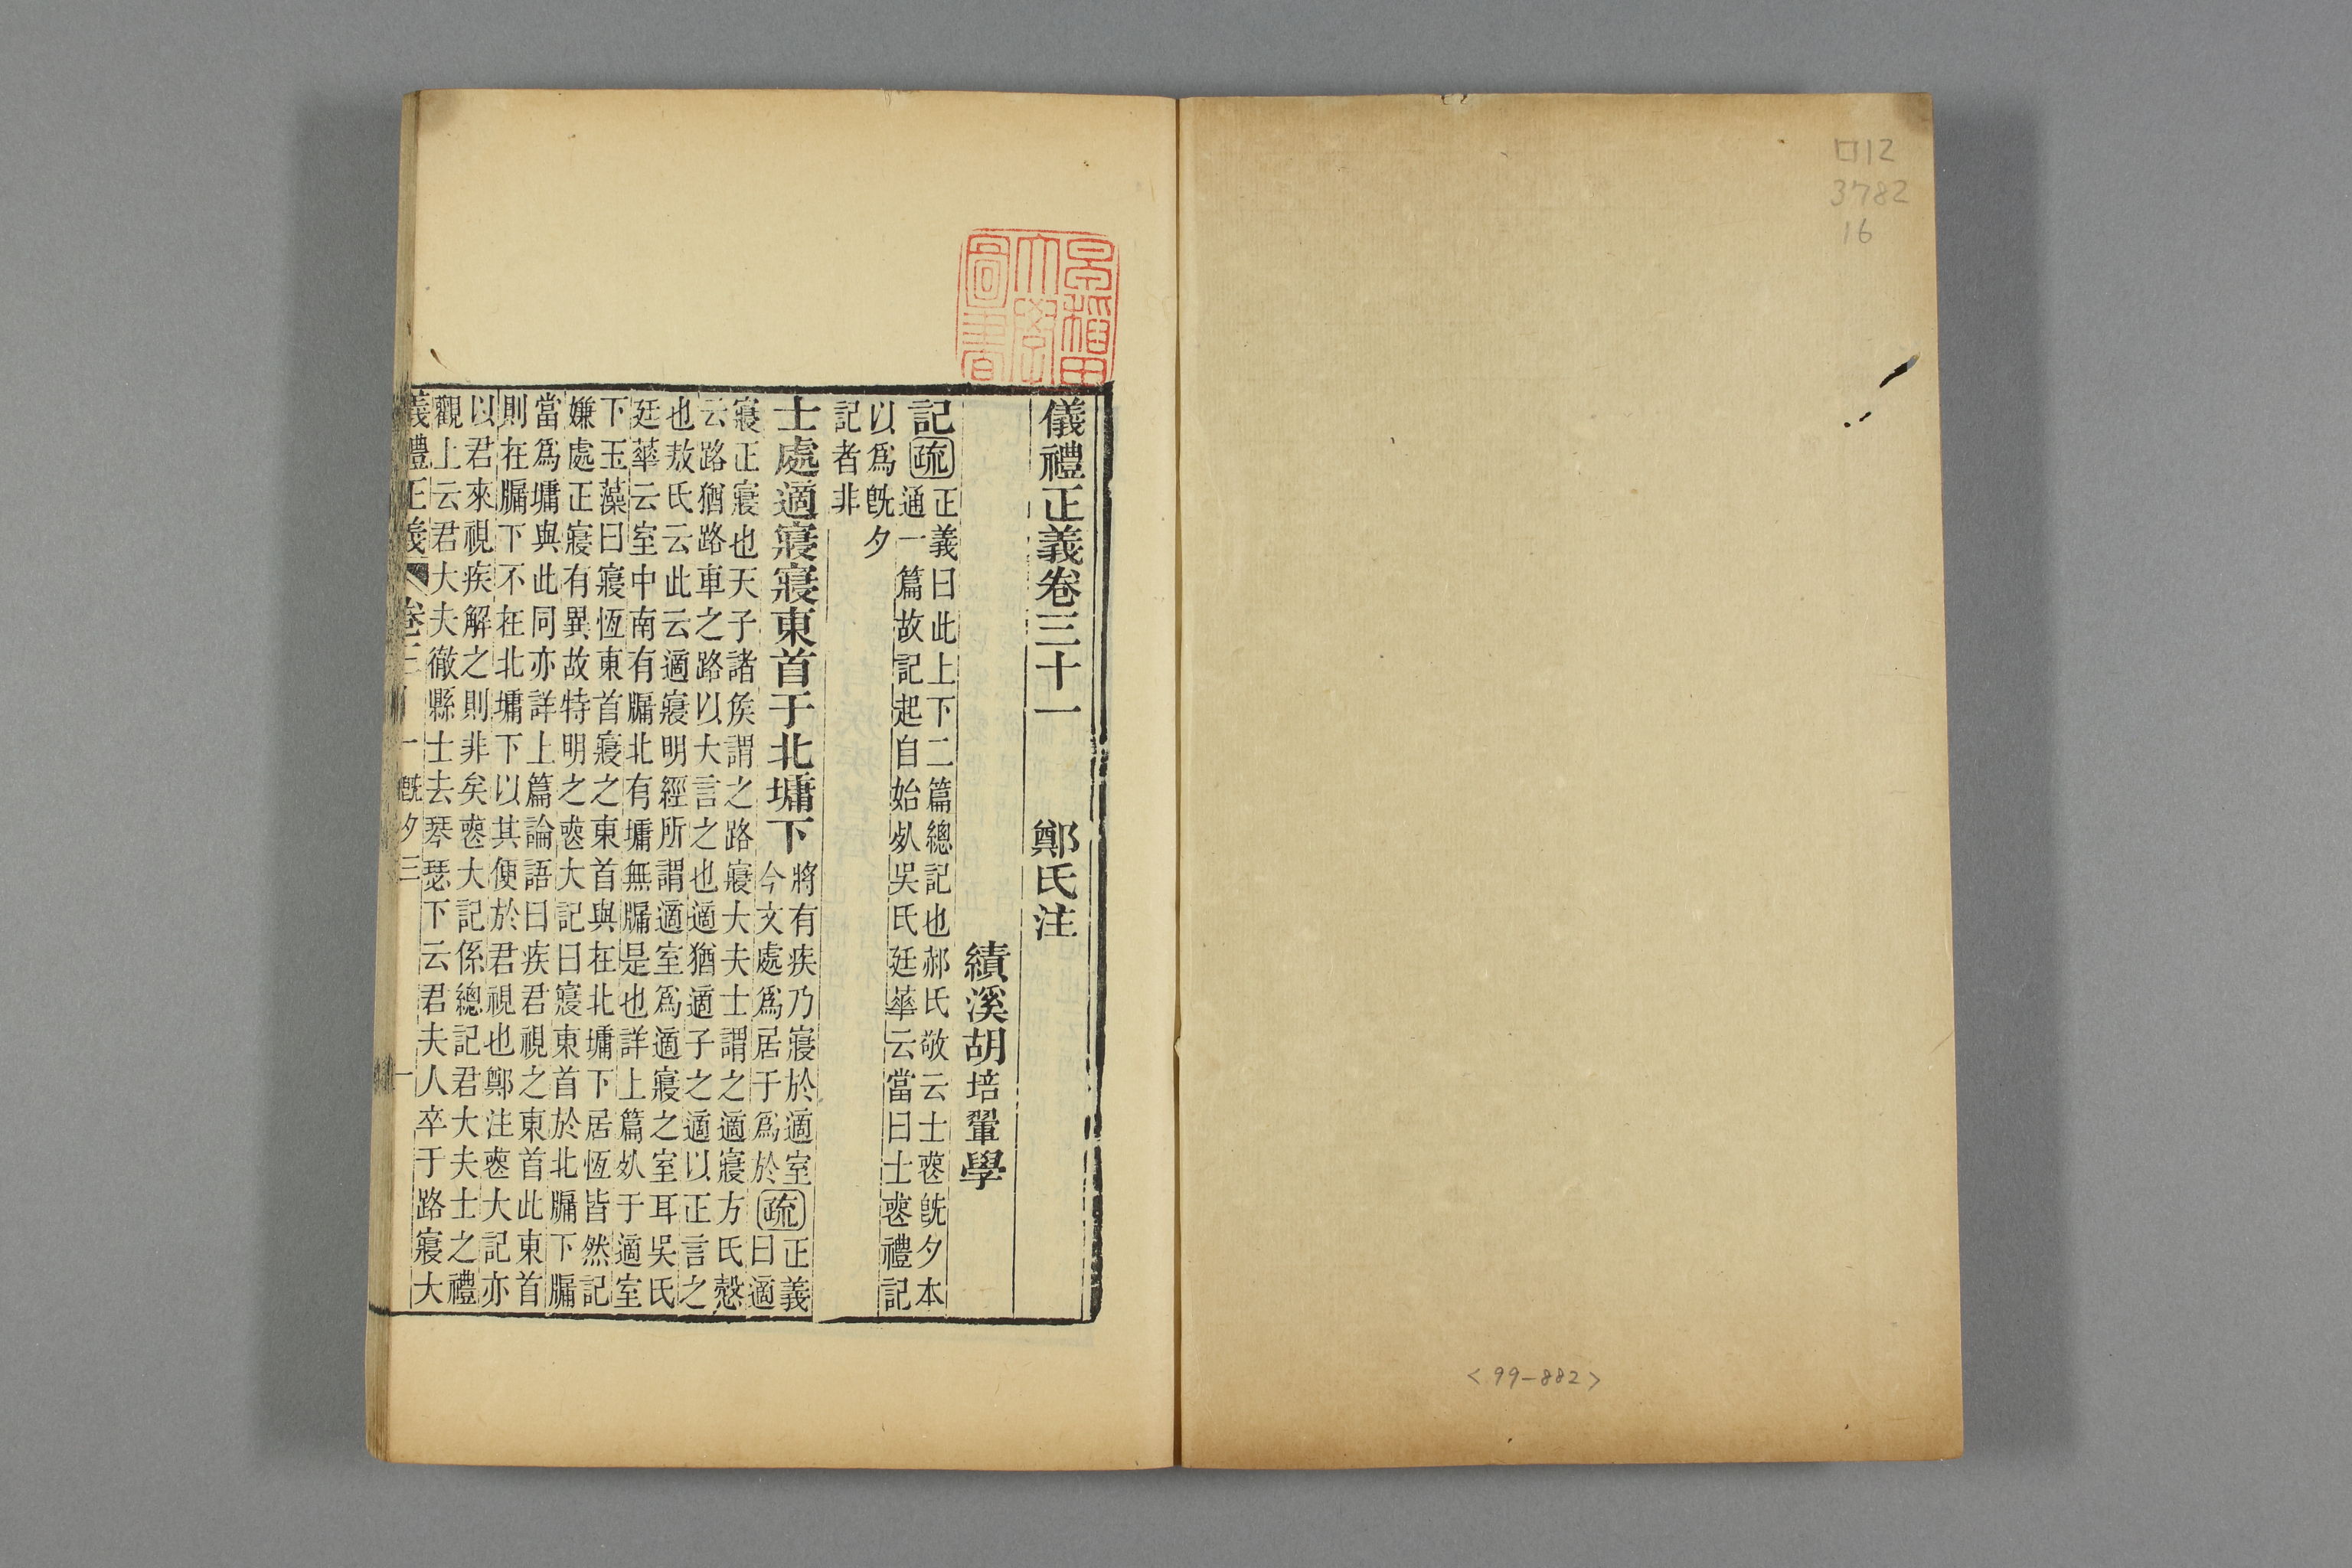 口12
3782
16
<99-882>
早稲田
大學
圖書
儀禮正義卷三十一　鄭氏注
績溪胡培翬學
記疏正義曰此上下二篇總記也郝氏敬云士䘮旣夕本
通一篇故記起自始𣦸吳氏廷華云當曰士䘮禮記
以爲旣夕
記者非
士處適寢寢東首于北墉下將有疾乃寢於適室
今文處爲居于爲於疏正義
曰適
寢正寢也天子諸矦謂之路寢大夫士謂之適寢方氏愨
云路猶路車之路以大言之也適猶適子之適以正言之
也敖氏云此云適寢明經所謂適室爲適寢之室耳吳氏
廷華云室中南有牖北有墉無牖是也詳上篇𣦸于適室
下玉藻曰寢恆東首寢之東首與在北墉下居恆皆然記
嫌處正寢有異故特明之䘮大記曰寢東首於北牖下牖
當爲墉與此同亦詳上篇論語曰疾君視之東首此東首
則在牖下不在北墉下以其便於君視也鄭注䘮大記亦
以君來視疾解之則非矣䘮大記係總記君大夫士之禮
觀上云君大夫徹縣士去琴瑟下云君夫人卒于路寢大
儀禮正義　卷三十一　旣夕三　一